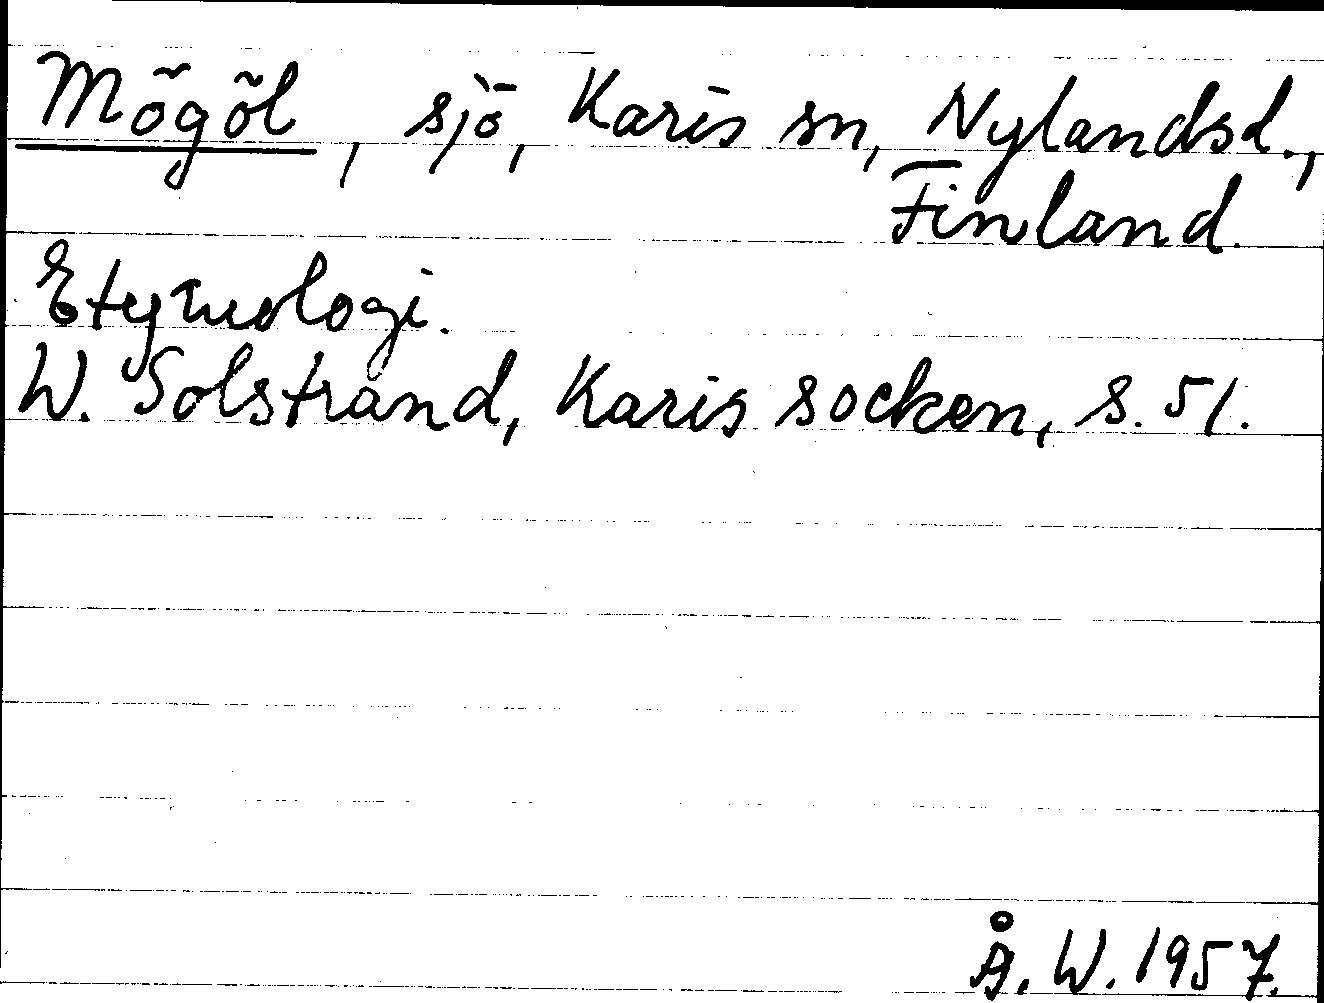 Mögöl, sjö, Karis sn, Nylandsd.,
Finland.
Etymologi.
W. Solstrand, Karis socken, s. 51.
Å. W. 1957.